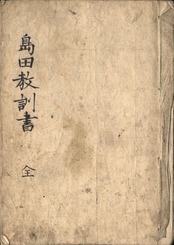 島田教訓書
全